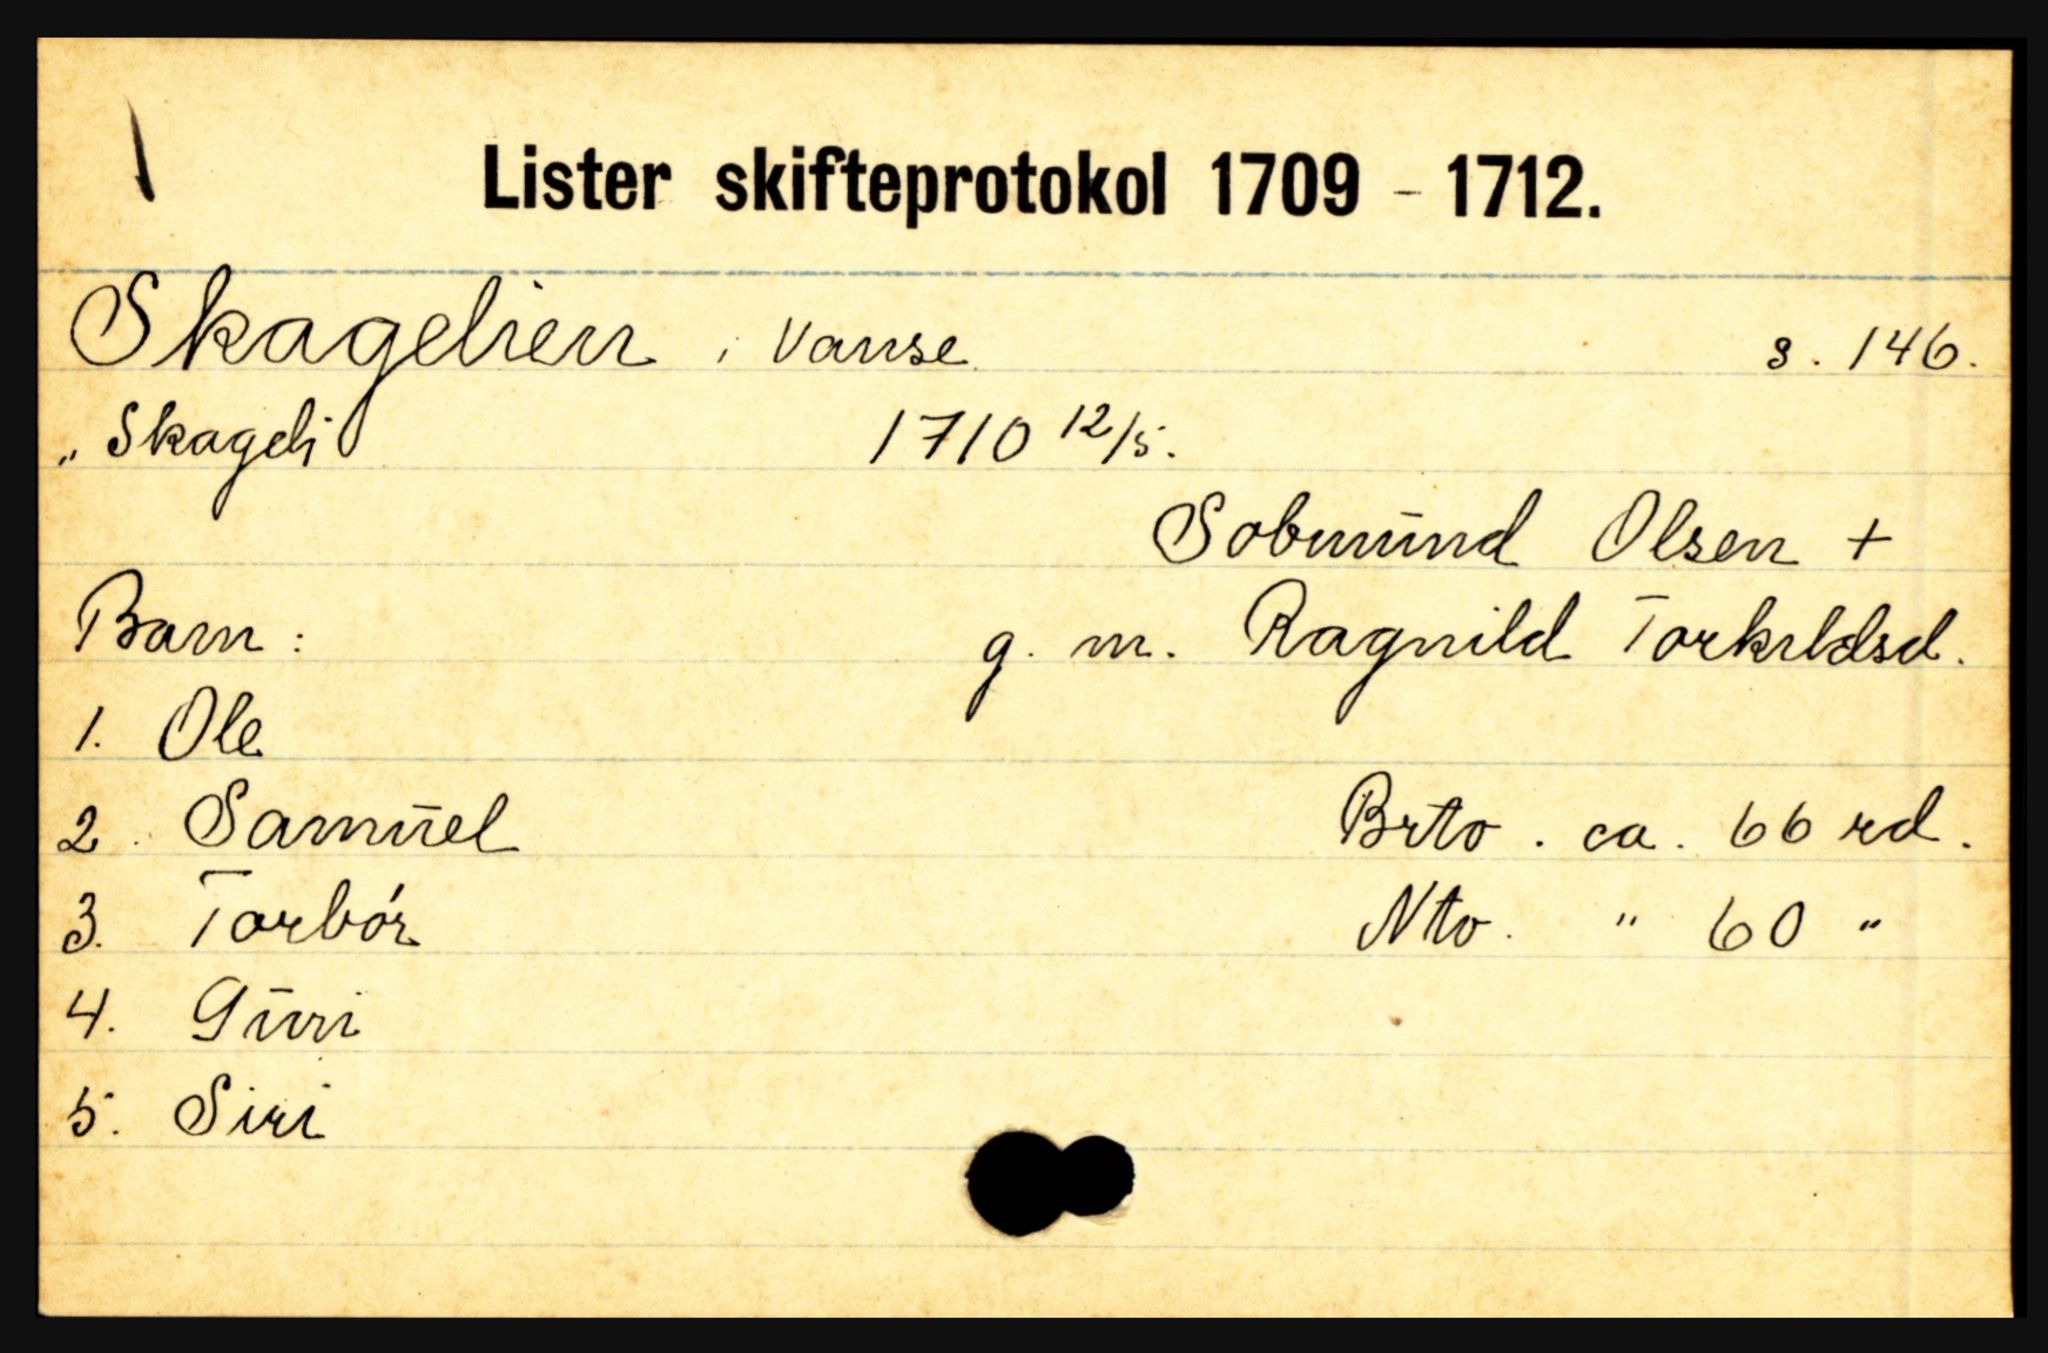 Lister skifteprotokol 1709 - 1712.
Skagelien i Vanse s. 146.
„ Skageli 1710 12/5.
Sobmund Olsen +
Barn: g. m. Ragnild Torkildsd.
1. Ole
2. Samuel Brto. ca. 66 rd.
3. Torbór Nto. " 60 "
4. Guri
5. Siri